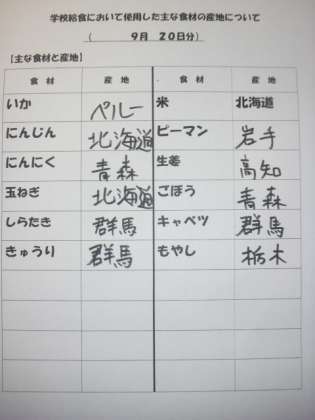 学校給食において使用した主な食材の産地について
（ 9月 20日分）
【主な食材と産地】
食材 産地 食材 産地
いか ペルー 米 北海道
にんじん 北海道 ピーマン 岩手
にんにく 青森 生姜 高知
玉ねぎ 北海道 ごぼう 青森
しらたき 群馬 キャベツ 群馬
きゅうり 群馬 もやし 栃木